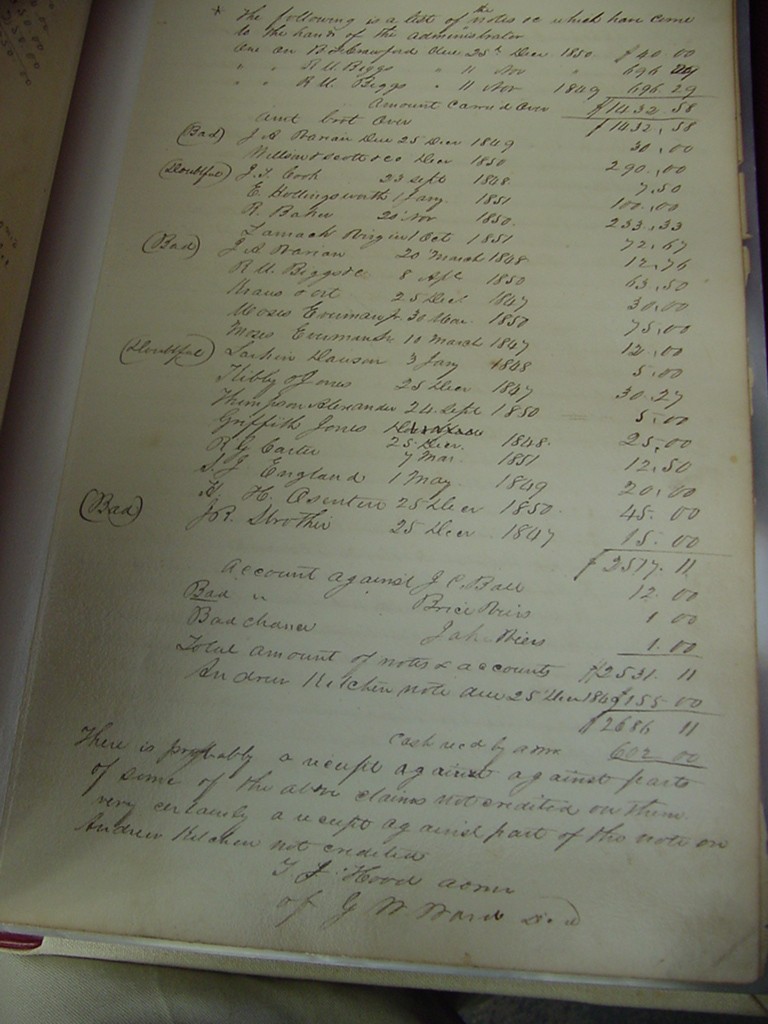 * The following is a list of the notes &c which have come
to the hands of the administrator
One on B F Crawford due 25th Decr 1850 $40.00
" " R. U. Biggs " 11 Nov " 696 29
" " R. U. Biggs " 11 Nov 1849 696.29
Amount Carri'd Over $1432.58
amt brot Over $1432.58
(Bad) J. A. Due 25 Decr 1849 30.00
Decr 1850 290.00
(Doubtful) J. T. Cook 23 Sept 1848 7.50
E. Hollingsworth 1 Jany 1851 100.00
R. Baker 20 Nov 1850 233.33
1 Oct 1851 72.67
(Bad) J. A. 20 March 1848 12.76
R. U. Biggs &c 8 Apl 1850 63.50
25 Decr 1847 30.00
Moses 30 Mar 1850 75.00
Moses 10 March 1847 12.00
(Doubtful) Larkin Dawson 3 Jany 1848 5.00
Kibby & Jones 25 Decr 1847 30.27
Thompson Alexander 24 Sept 1850 5.00
Griffith Jones 25 Decr. 1848 25.00
R G Carter 7 Mar. 1851 12.50
S. J. England 1 May 1849 20.00
H. 25 Decr 1850 45.00
(Bad) J. R. Strother 25 Decr 1847 15.00
$2517.11
Account against J. C. Ball 12.00
Bad " Brice 1 00
Bad chance 1.00
Total amount of notes & accounts $2531.11
Andrew Kitchen note due 25 Decr 1849 $155.00
$2686 11
Cash recd by admr 602.00
There is probably a receipt against against parts
of some of the above claims not credited on them.
very certainly a receipt against part of the note on
Andrew Kitchen not credited
T J Hood admr
of G W Ward Decd